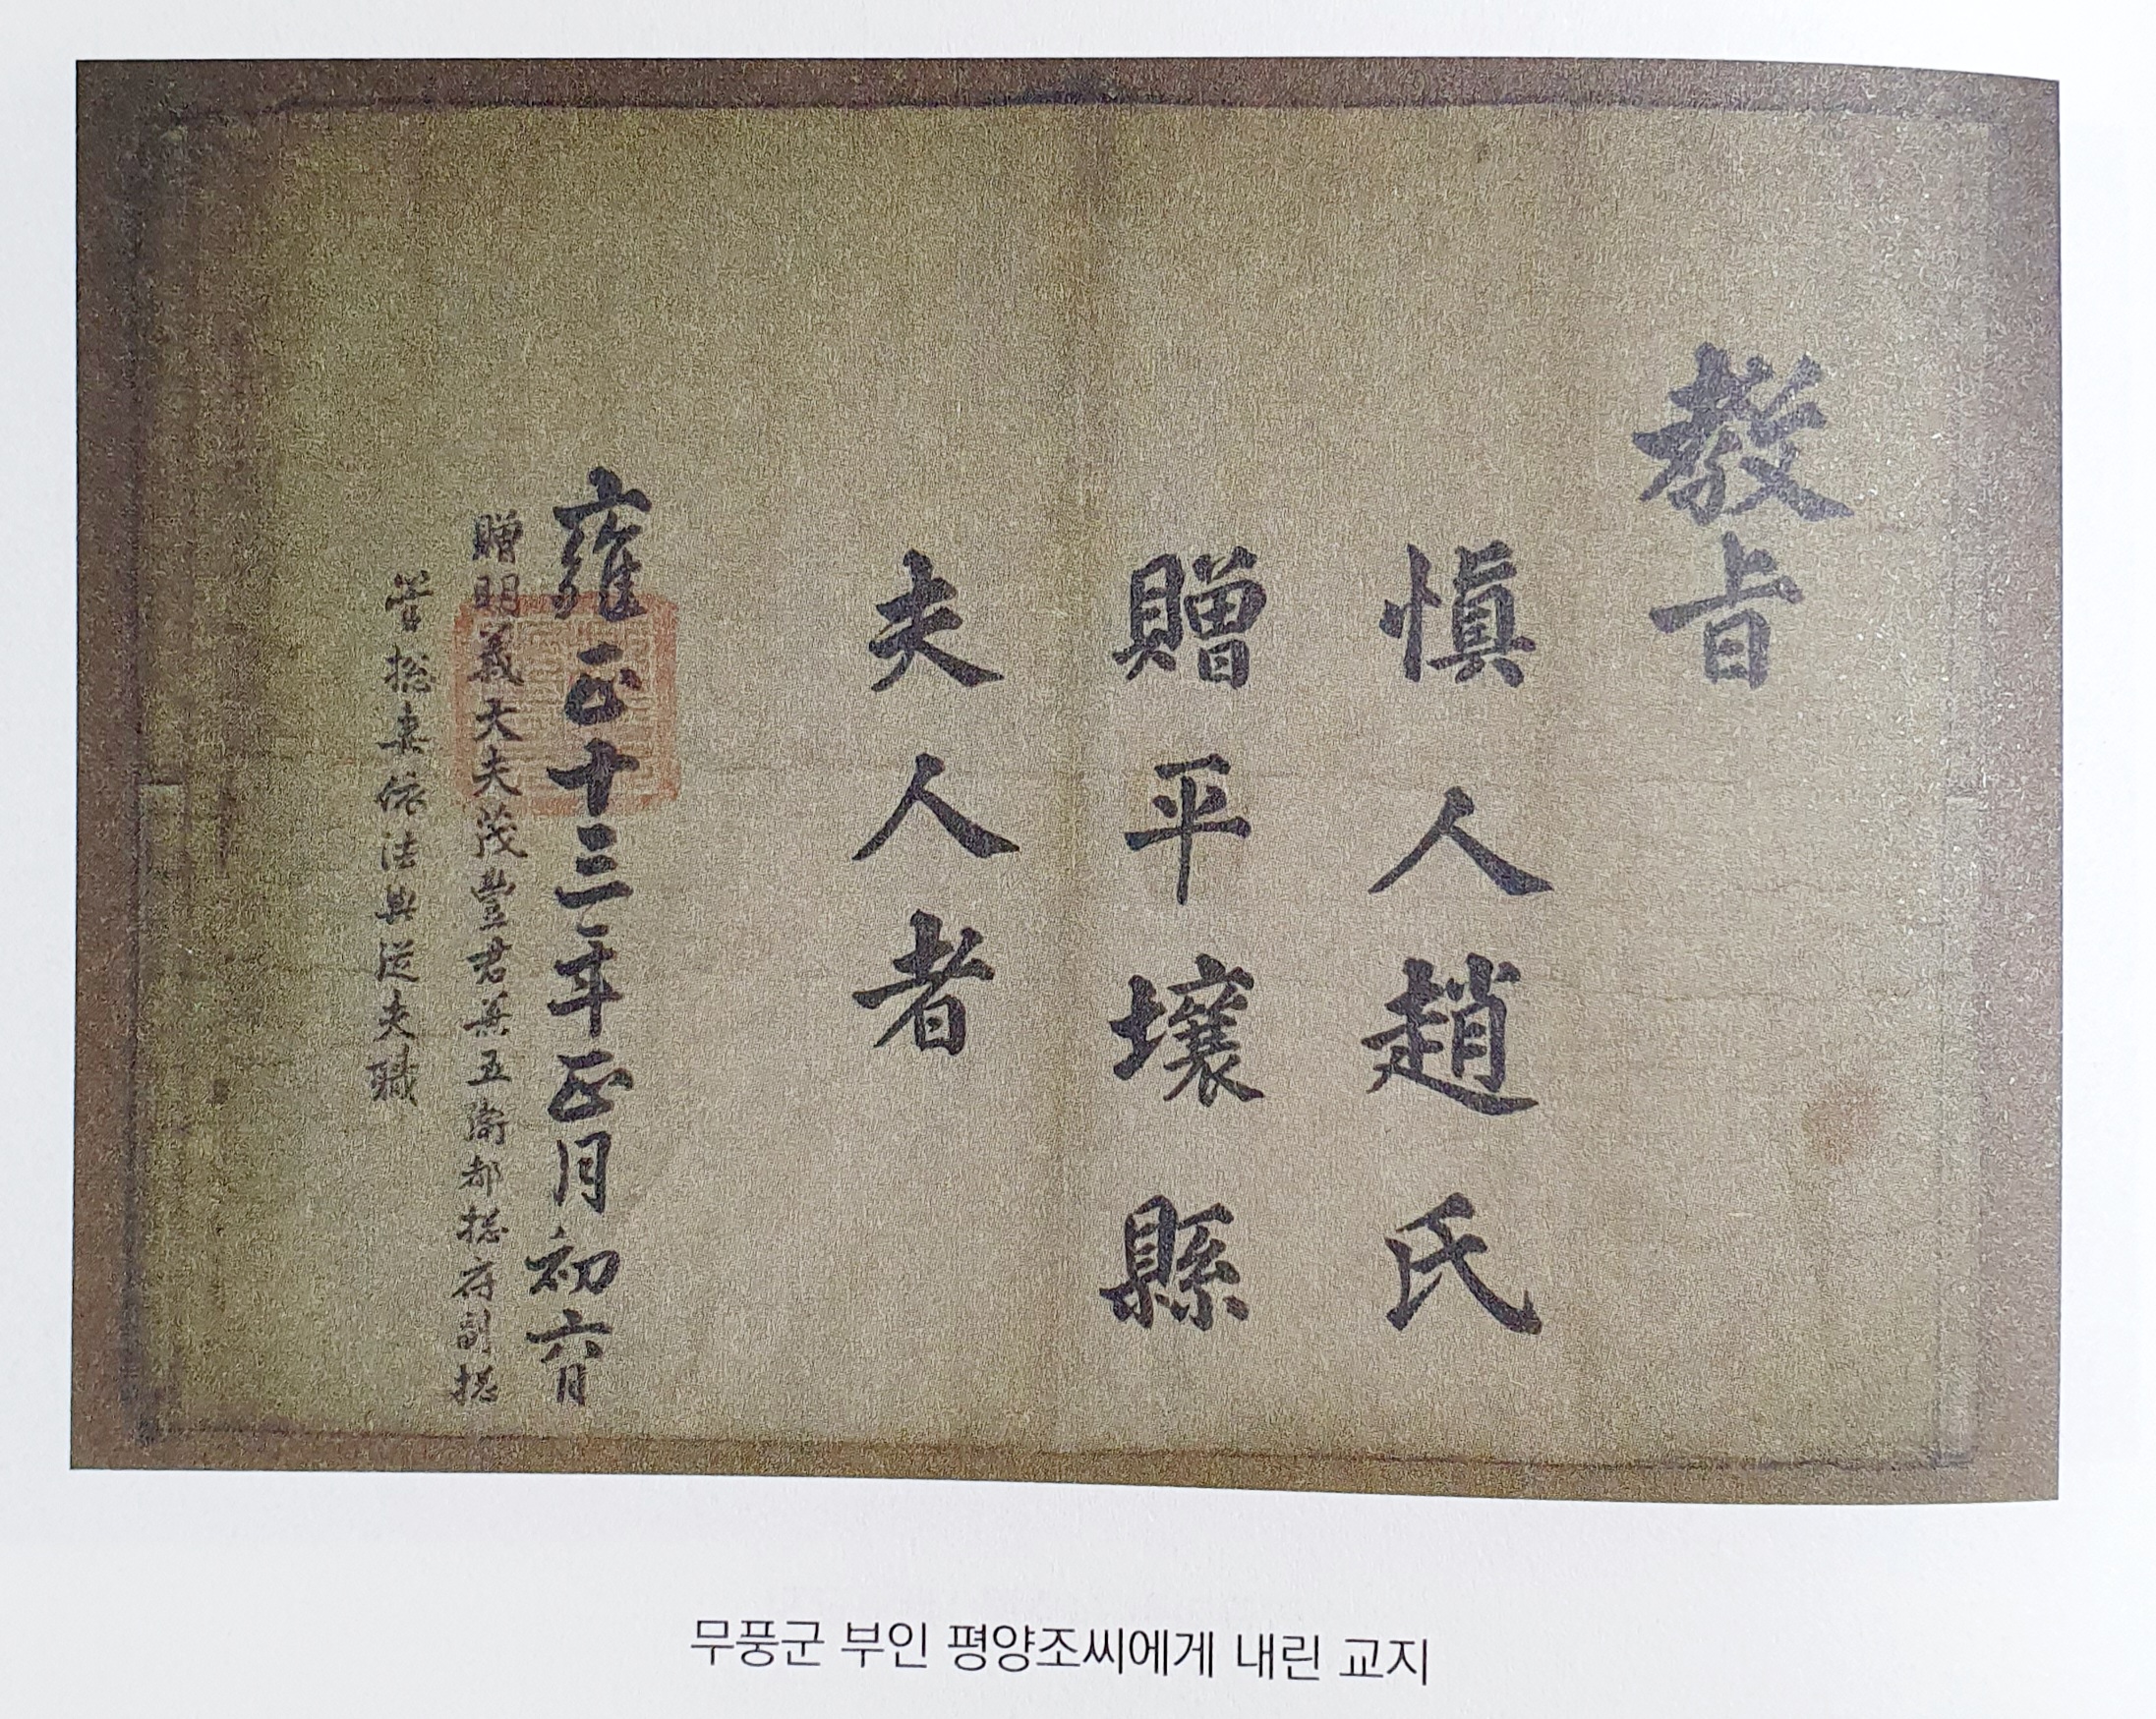 敎旨
愼人趙氏
贈平壤縣
夫人者
雍正十三年正月初六日
贈明義大夫茂豊君兼五衛都摠府副摠
管摠妻依法典從夫職
무풍군 부인 평양조씨에게 내린 교지